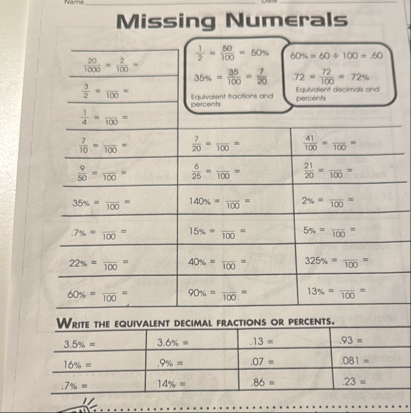 Name
Missing Numerals
1/2 = 50/100 = 50%
35% = 35/100 = 7/20
Equivalent fractions and
percents
60% = 60 ÷ 100 = .60
.72 = 72/100 = 72%
Equivalent decimals and
percents
20/1000 = 2/100 =
3/2 = /100 =
1/4 = /100 =
7/10 = /100 = 7/20 = /100 = 41/100 = /100 =
9/50 = /100 = 6/25 = /100 = 21/20 = /100 =
35% = /100 = 140% = /100 = 2% = /100 =
.7% = /100 = 15% = /100 = 5% = /100 =
22% = /100 = 40% = /100 = 325% = /100 =
60% = /100 = 90% = /100 = 13% = /100 =
WRITE THE EQUIVALENT DECIMAL FRACTIONS OR PERCENTS.
3.5% = 3.6% = .13 = .93 =
16% = .9% = .07 = .081 =
.7% = 14% = .86 = .23 =